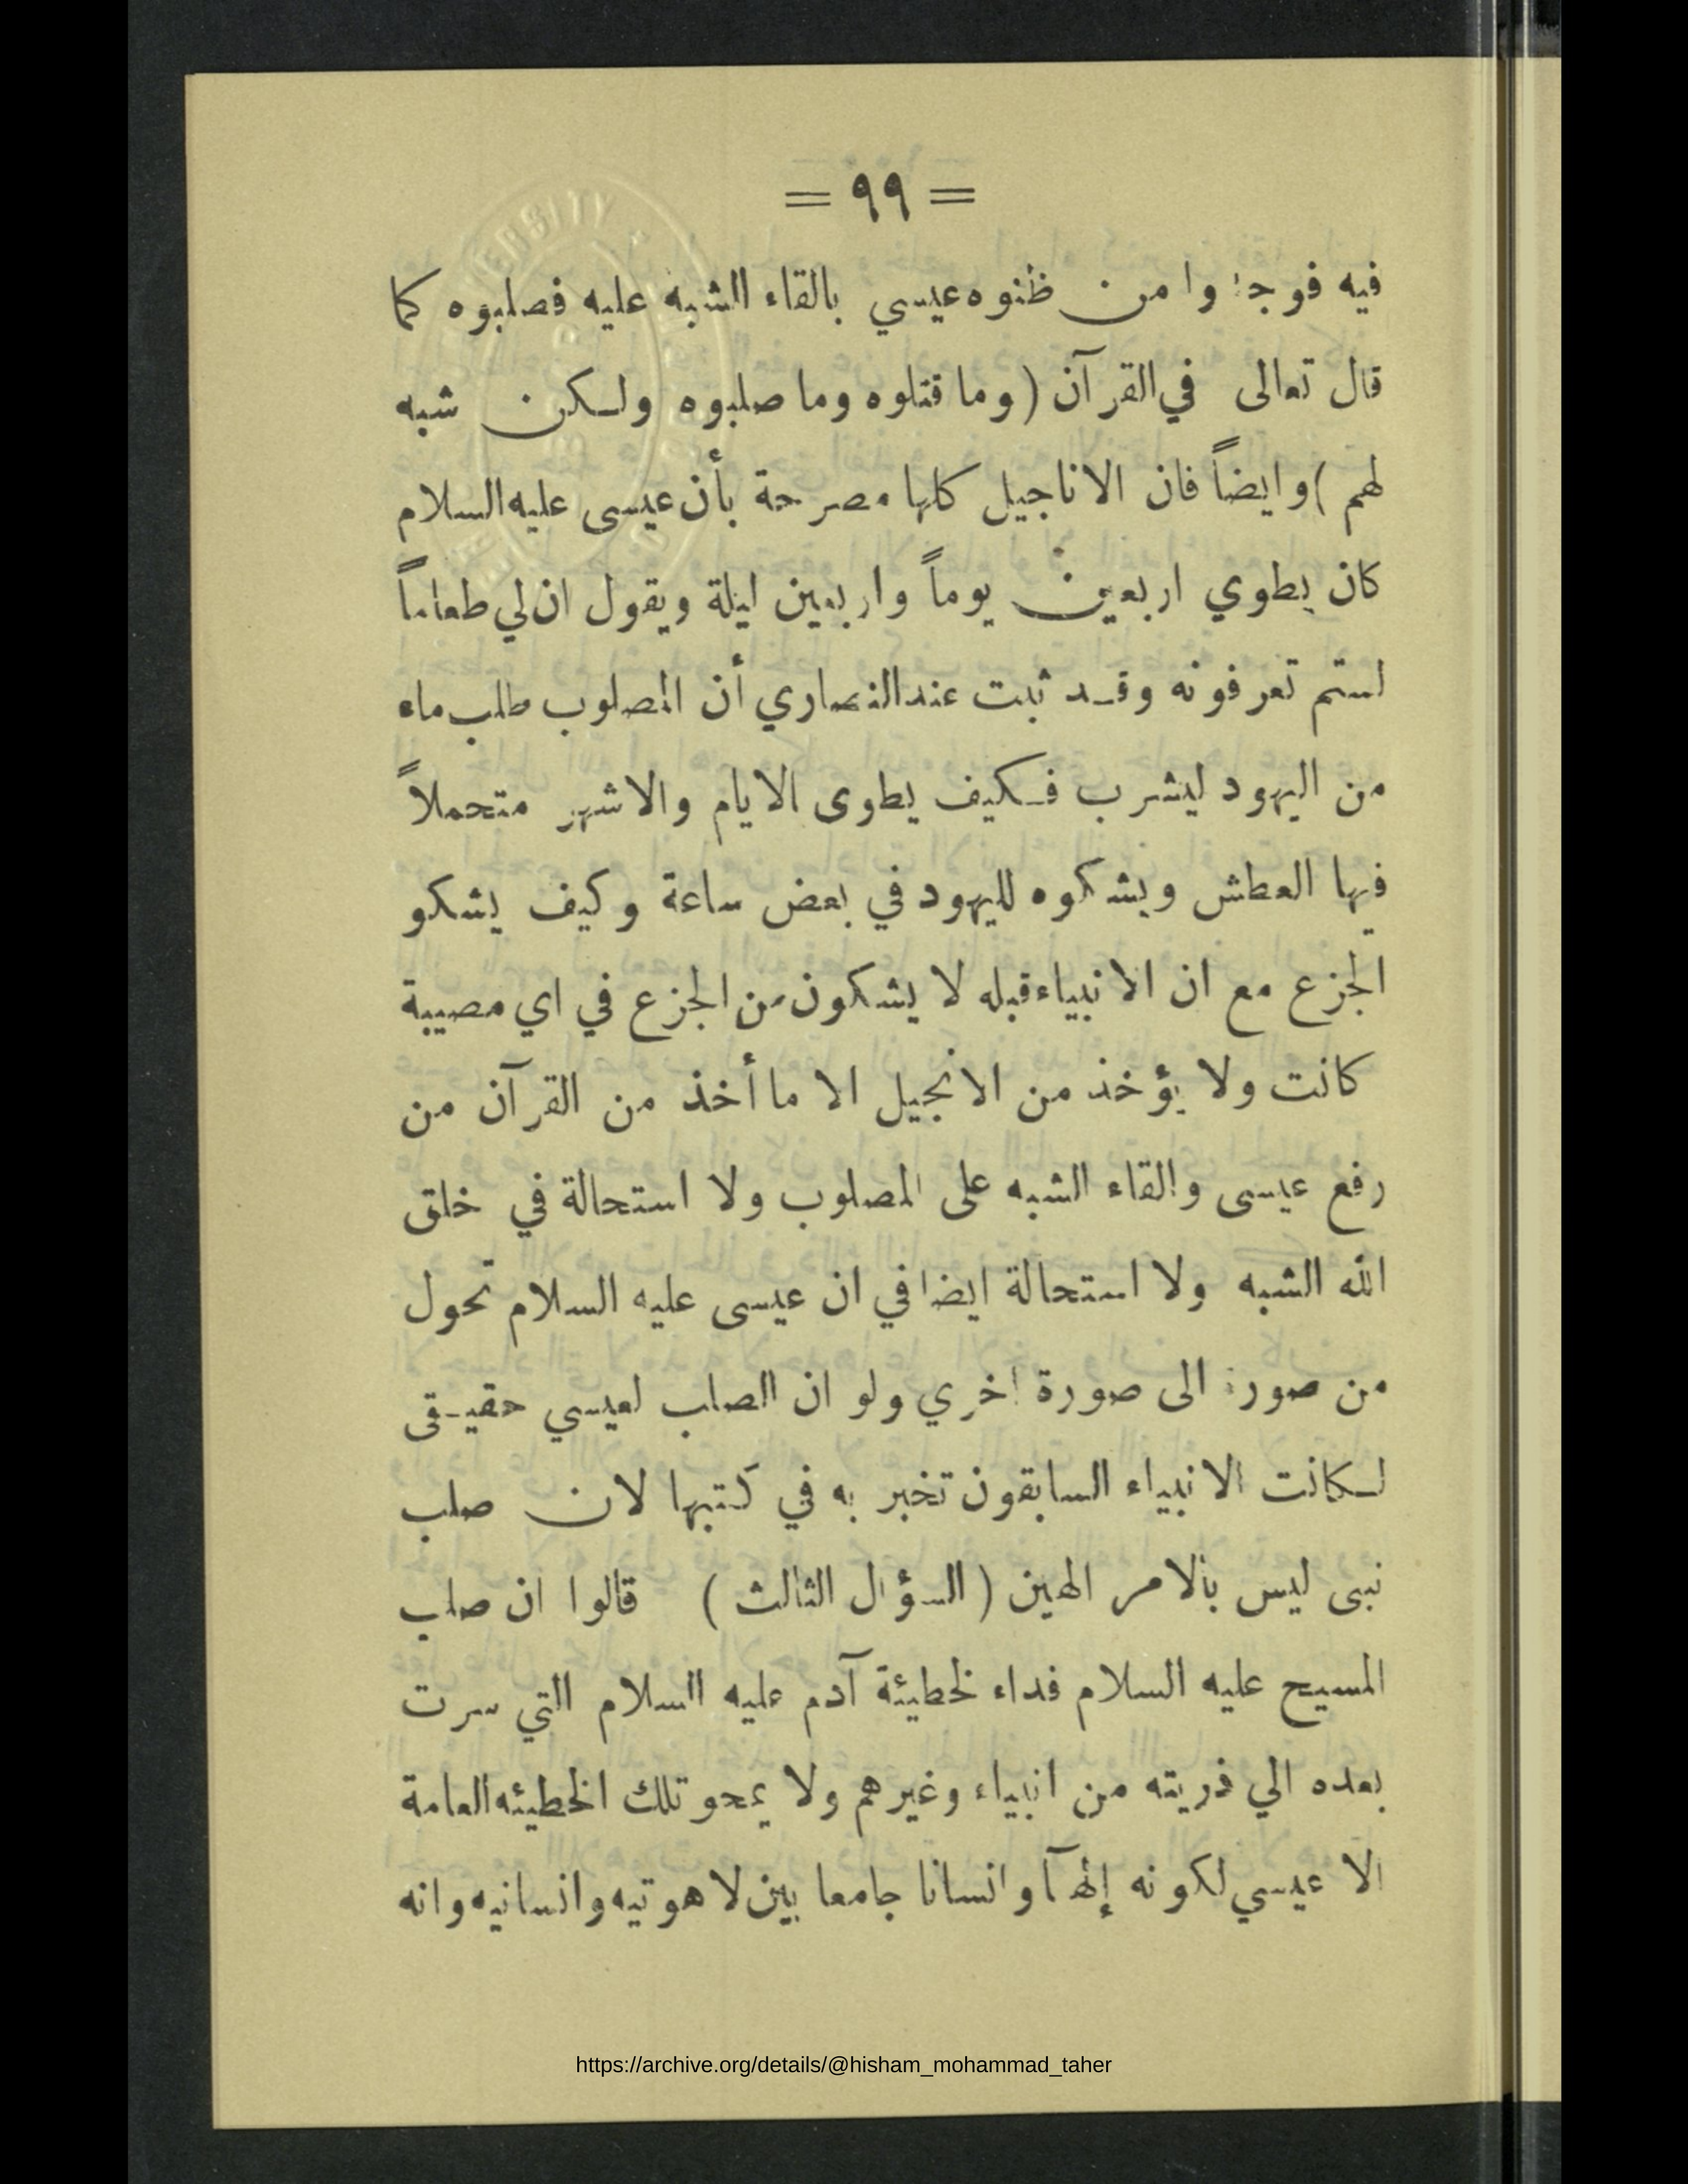 = ٩٩ =
فيه فوجدوا من ظنوه عيسي بالقاء الشبه عليه فصلبوه كما
قال تعالى في القرآن (وما قتلوه وما صلبوه ولكن شبه
لهم) وايضاً فان الاناجيل كلها مصرحة بأن عيسى عليه السلام
كان يطوي اربعين يوماً واربعين ليلة ويقول ان لي طعاماً
لستم تعرفونه وقد ثبت عند النصاري أن المصلوب طلب ماء
من اليهود ليشرب فكيف يطوى الايام والاشهر متحملاً
فيها العطش ويشكوه لليهود في بعض ساعة وكيف يشكو
الجزع مع ان الانبياء قبله لا يشكون من الجزع في اي مصيبة
كانت ولا يؤخذ من الانجيل الا ما أخذ من القرآن من
رفع عيسى والقاء الشبه على المصلوب ولا استحالة في خلق
الله الشبه ولا استحالة ايضا في ان عيسى عليه السلام تحول
من صورة الى صورة اخري ولو ان الصلب لعيسي حقيقى
لكانت الانبياء السابقون تخبر به في كتبها لان صلب
نبى ليس بالامر الهين (السؤال الثالث) قالوا ان صلب
المسيح عليه السلام فداء لخطيئة آدم عليه السلام التي سرت
بعده الي ذريته من انبياء وغيرهم ولا يمحو تلك الخطيئه العامة
الا عيسي لكونه إلهآ وانسانا جامعا بين لاهوتيه وانسانيه وانه
https://archive.org/details/@hisham_mohammad_taher